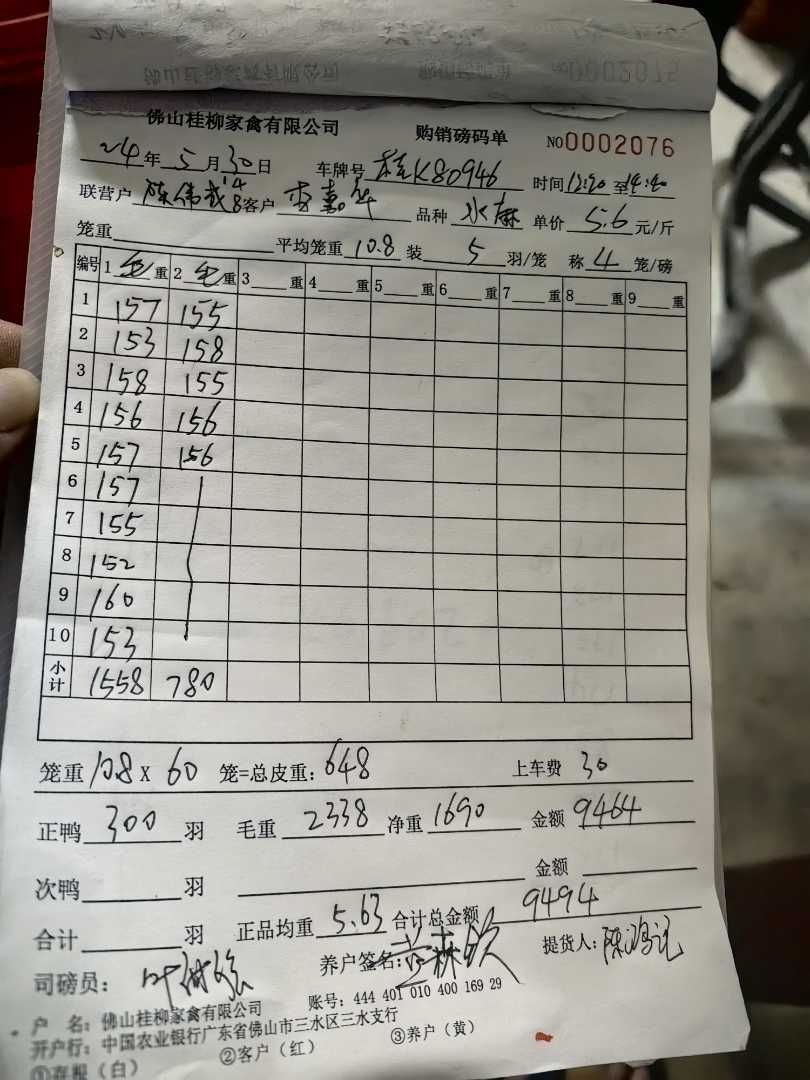 佛山桂柳家禽有限公司 购销磅码单 NO0002075
佛山桂柳家禽有限公司 购销磅码单 NO0002076
24年5月30日 车牌号 桂K80946 时间12:20至14:40
联营户 陈伟 客户 李嘉华 品种 水麻 单价 5.6 元/斤
笼重 平均笼重 10.8 装 5 羽/笼 称 4 笼/磅
编号 1 毛 重 2 毛 重 3 重 4 重 5 重 6 重 7 重 8 重 9 重
1 157 155
2 153 158
3 158 155
4 156 156
5 157 156
6 157
7 155
8 152
9 160
10 153
小计 1558 780
笼重 10.8 X 60 笼=总皮重: 648 上车费 30
正鸭 300 羽 毛重 2338 净重 1690 金额 9464
次鸭 羽 金额
合计 羽 正品均重 5.63 合计总金额 9494
司磅员: 养户签名: 提货人:
户 名: 佛山桂柳家禽有限公司 账号: 444 401 010 400 169 29
开户行: 中国农业银行广东省佛山市三水区三水支行
①存根（白） ②客户（红） ③养户（黄）